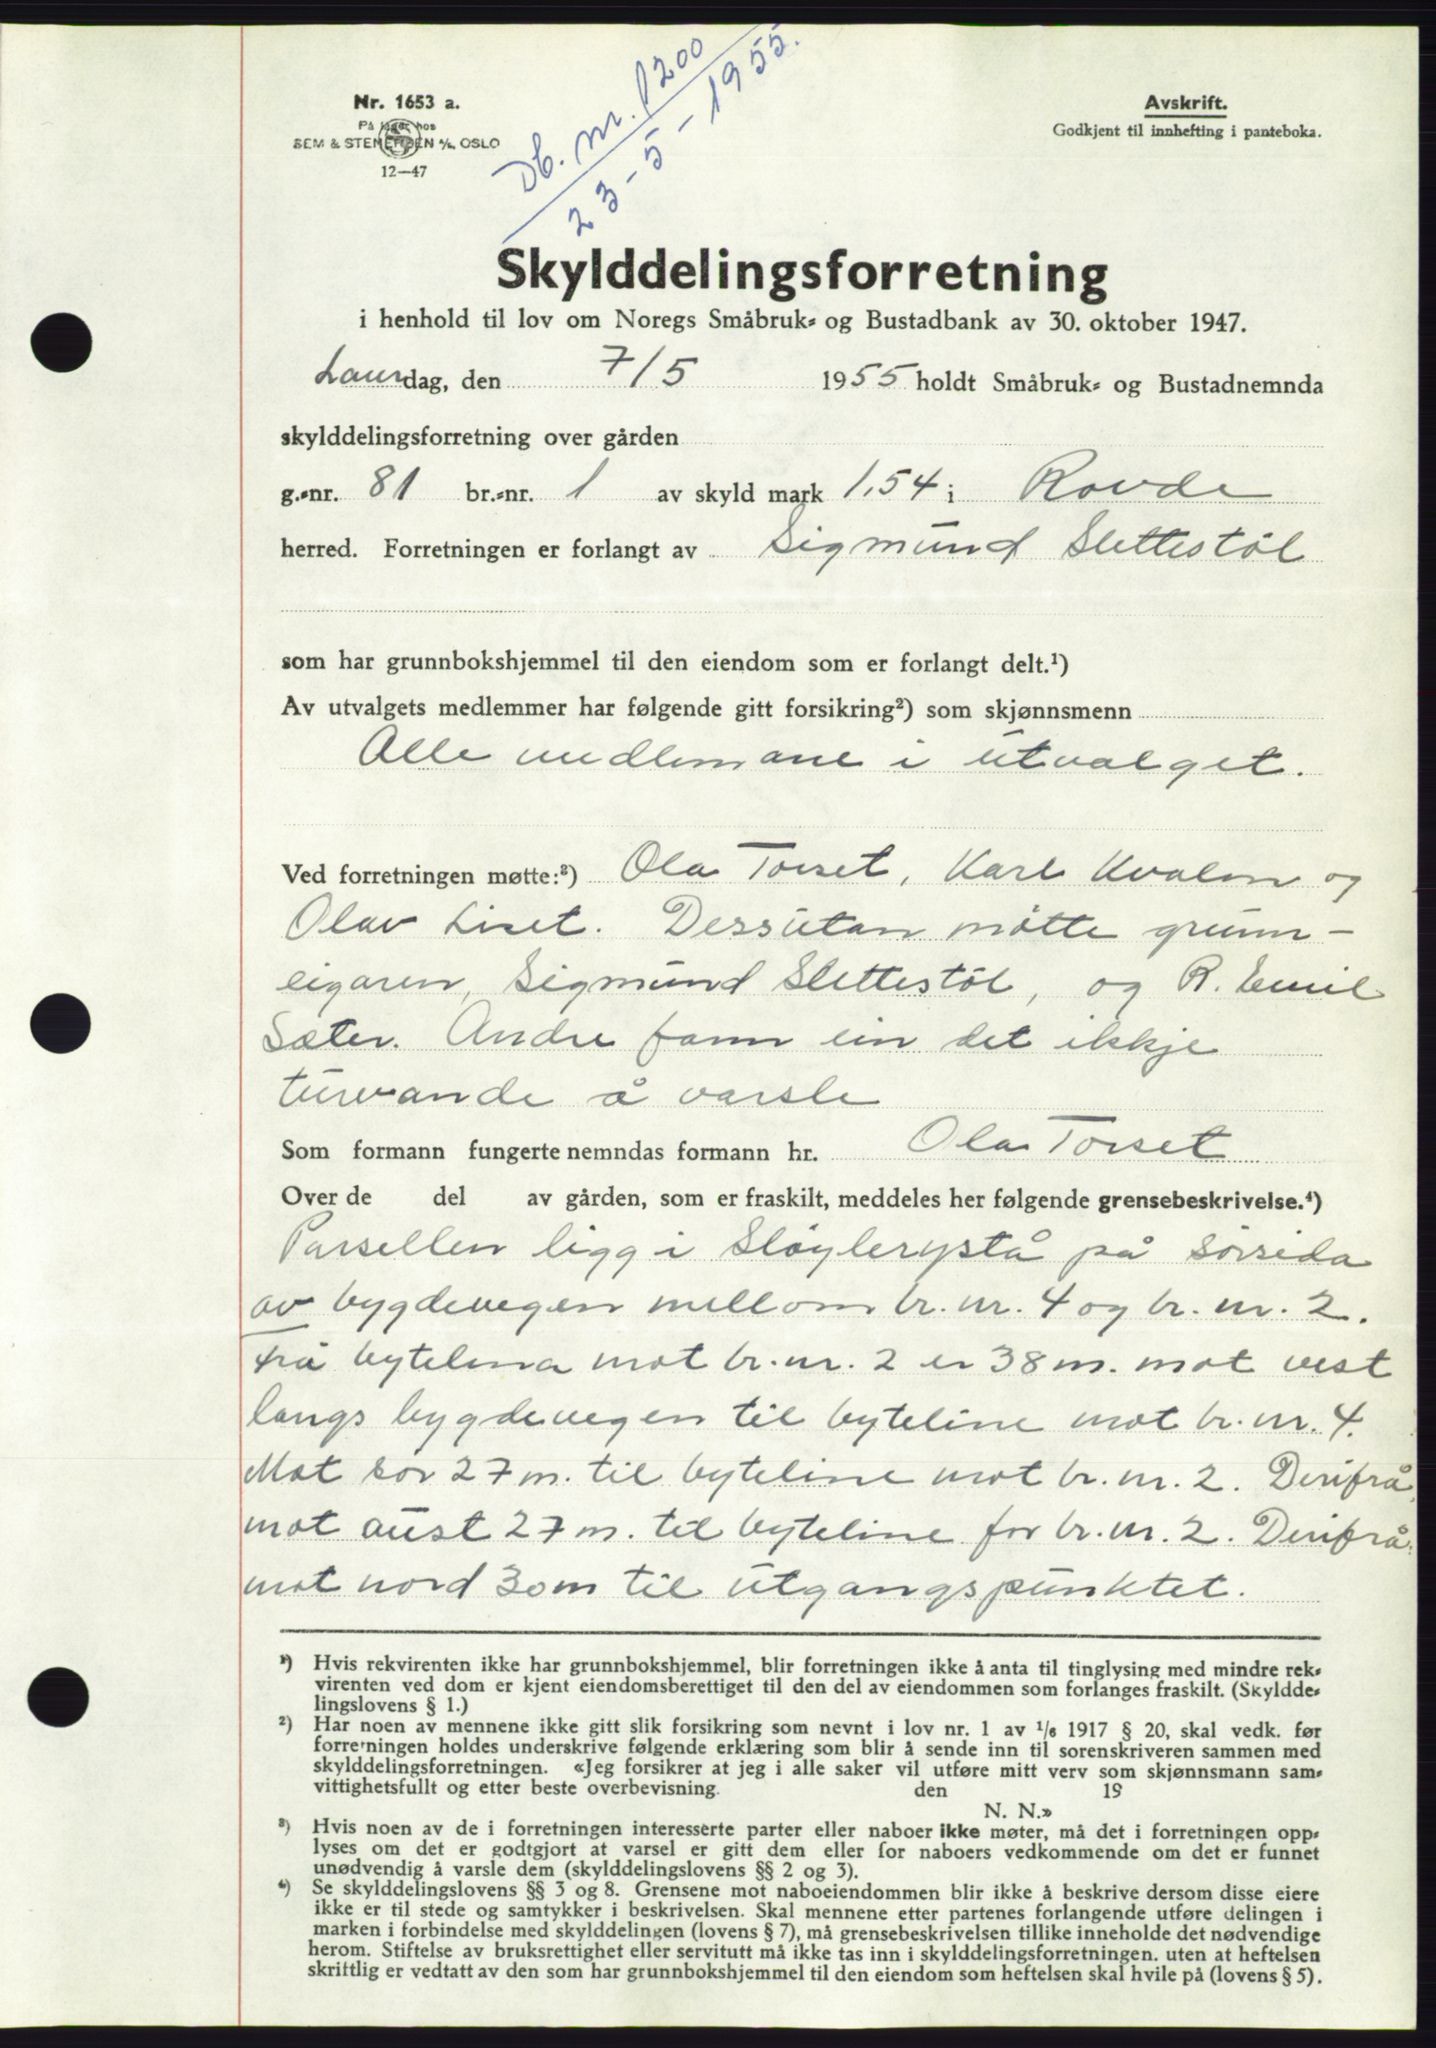 Db. nr. 1200
23-5-1955.
Nr. 1653 a.
På lager hos
SEM & STENERSEN A/S, OSLO
12—47
Avskrift.
Godkjent til innhefting i panteboka.
Skylddelingsforretning
i henhold til lov om Noregs Småbruk- og Bustadbank av 30. oktober 1947.
Laurdag, den 7/5 1955 holdt Småbruk- og Bustadnemnda
skylddelingsforretning over gården
g.-nr. 81 br.-nr. 1 av skyld mark 1,54 i Rovde
herred. Forretningen er forlangt av Sigmund Slettestøl
som har grunnbokshjemmel til den eiendom som er forlangt delt.¹)
Av utvalgets medlemmer har følgende gitt forsikring²) som skjønnsmenn
Alle medlemane i utvalget.
Ved forretningen møtte:³) Ola Torset, Karl Kvalen og
Olav Liset. Dessutan møtte grunn-
eigaren, Sigmund Slettestøl, og R. Emil
Sæter. Andre fann ein det ikkje
turvande å varsle
Som formann fungerte nemndas formann hr. Ola Torset
Over de del av gården, som er fraskilt, meddeles her følgende grensebeskrivelse.⁴)
Parsellen ligg i Sløylerystå på sørsida
av bygdevegen mellom br. nr. 4 og br. nr. 2.
Frå bytelina mot br. nr. 2 er 38 m. mot vest
langs bygdevegen til byteline mot br. nr. 4.
Mot sør 27 m. til byteline mot br. nr. 2. Derifrå
mot aust 27 m. til byteline for br. nr. 2. Derifrå
mot nord 30 m til utgangspunktet.
¹) Hvis rekvirenten ikke har grunnbokshjemmel, blir forretningen ikke å anta til tinglysing med mindre rek-
virenten ved dom er kjent eiendomsberettiget til den del av eiendommen som forlanges fraskilt. (Skyldde-
lingslovens § 1.)
²) Har noen av mennene ikke gitt slik forsikring som nevnt i lov nr. 1 av 1/6 1917 § 20, skal vedk. før
forretningen holdes underskrive følgende erklæring som blir å sende inn til sorenskriveren sammen med
skylddelingsforretningen. «Jeg forsikrer at jeg i alle saker vil utføre mitt verv som skjønnsmann sam-
vittighetsfullt og etter beste overbevisning. den 19
N. N.»
³) Hvis noen av de i forretningen interesserte parter eller naboer ikke møter, må det i forretningen opp-
lyses om det er godtgjort at varsel er gitt dem eller for naboers vedkommende om det er funnet
unødvendig å varsle dem (skylddelingslovens §§ 2 og 3).
⁴) Se skylddelingslovens §§ 3 og 8. Grensene mot naboeiendommen blir ikke å beskrive dersom disse eiere
ikke er til stede og samtykker i beskrivelsen. Skal mennene etter partenes forlangende utføre delingen i
marken i forbindelse med skylddelingen (lovens § 7), må grensebeskrivelsen tillike inneholde det nødvendige
herom. Stiftelse av bruksrettighet eller servitutt må ikke tas inn i skylddelingsforretningen. uten at heftelsen
skriftlig er vedtatt av den som har grunnbokshjemmel til den eiendom som heftelsen skal hvile på (lovens § 5).